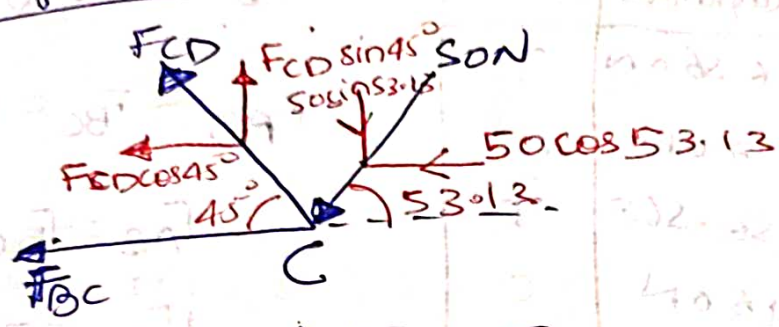 FCD
FCD sin45°
50N
50sin53.13
50cos53.13
FCDcos45°
45°
53.13
C
FBC